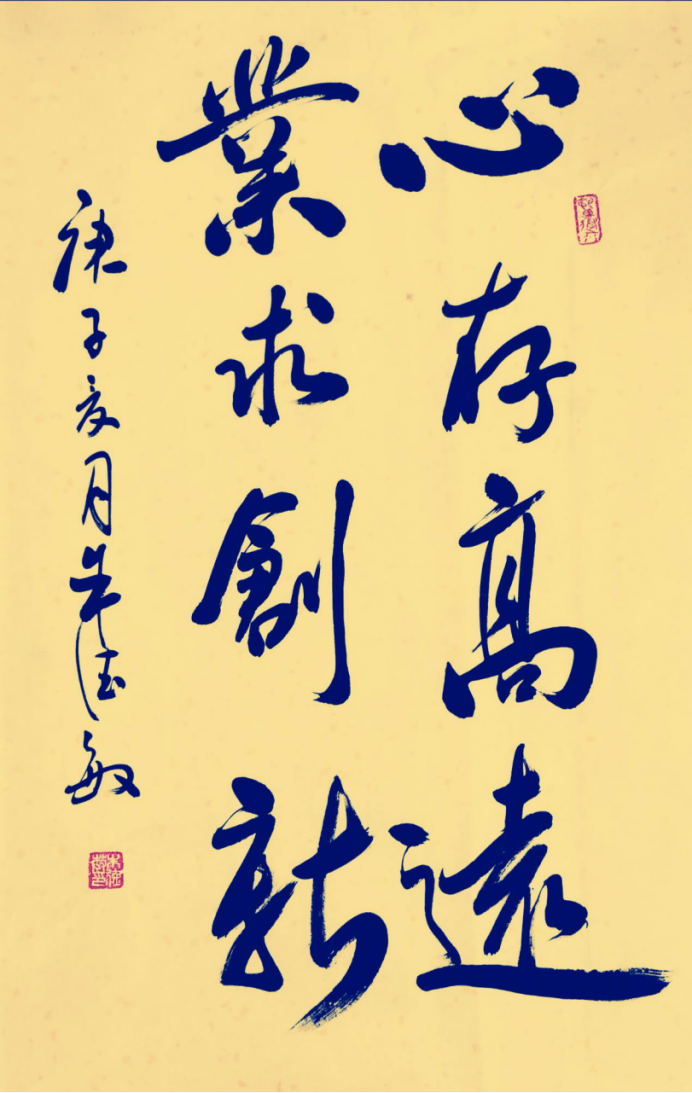 心存高遠
業求創新
庚子夏月朱德敏